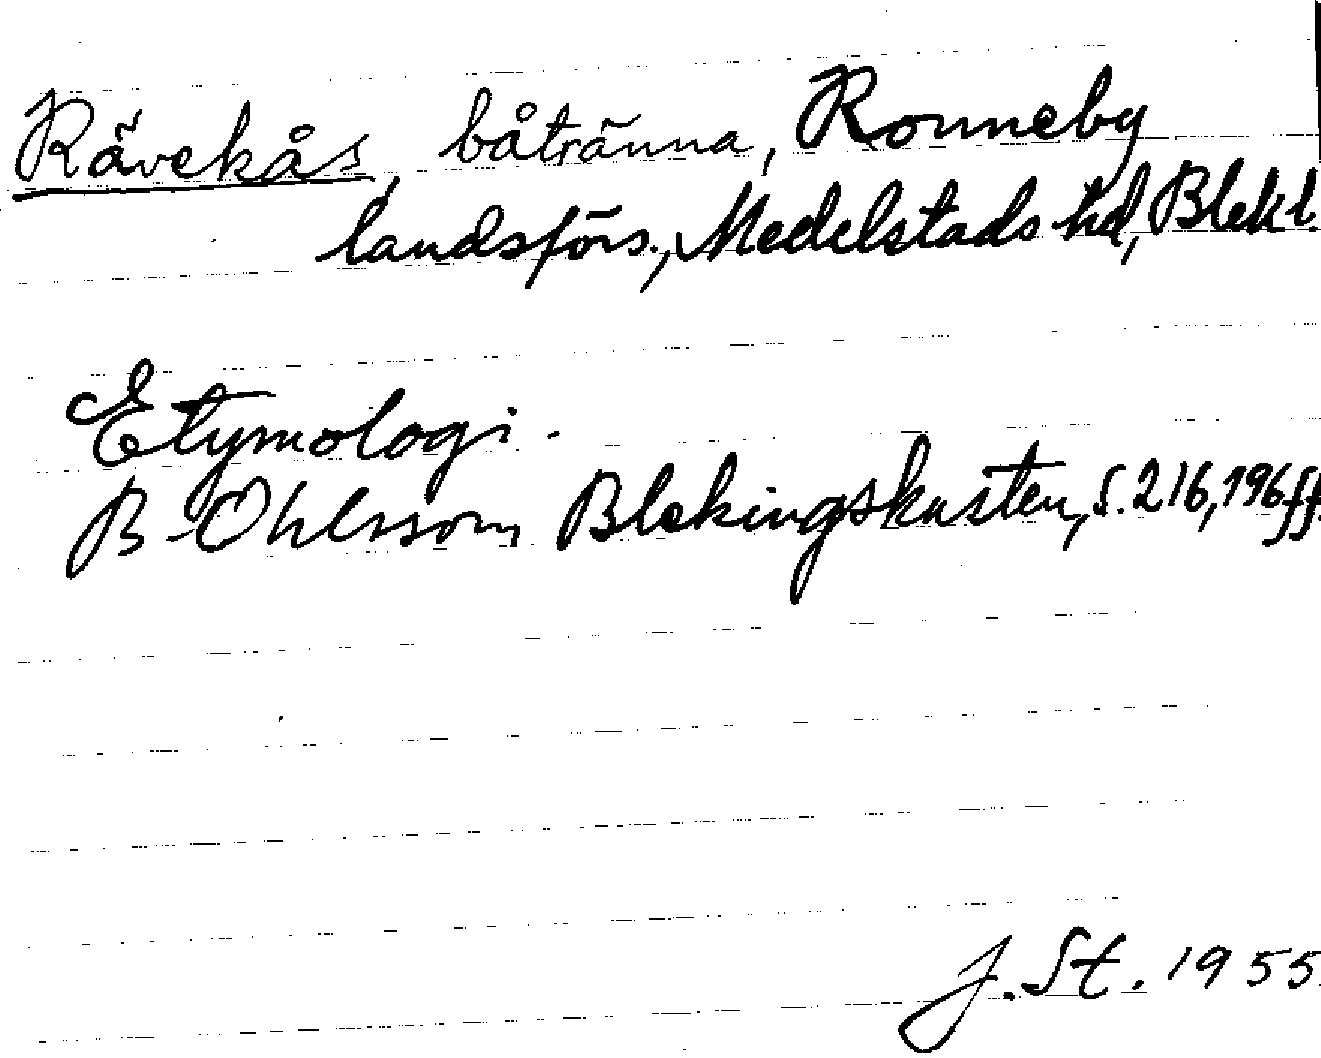 Rävekås, båtränna, Ronneby
landsförs., Medelstads hd, Blekl.
Etymologi.
B Ohlsson, Blekingskusten, s. 216, 196 ff.
J. St. 1955